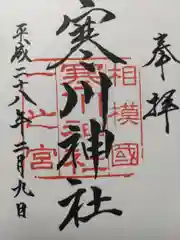 奉拝
相模國
一之宮
寒川神社
寒川神社
平成二十八年二月九日